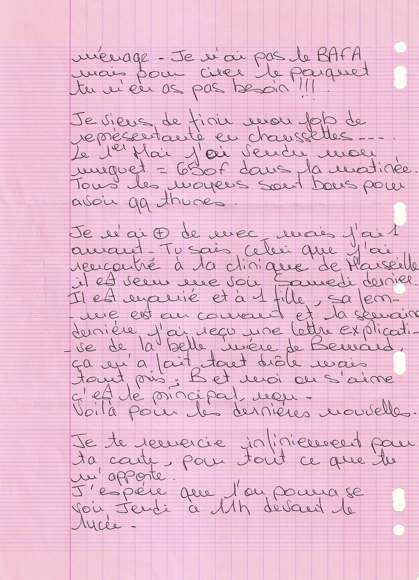 ménage - Je n'ai pas le BAFA
mais pour cirer le parquet
tu n'en as pas besoin !!!
Je viens de finir mon job de
représentante en chaussettes ----
Le 1er Mai j'ai vendu mon
muguet = 650f dans la matinée.
Tous les moyens sont bons pour
avoir qq thunes.
Je n'ai ⊕ de mec, mais j'ai 1
amant. Tu sais celui que j'ai
rencontré à la clinique de Marseille
il est venu me voir Samedi dernier.
Il est marié et à 1 fille, sa fem-
-me est au courant et la semaine
dernière j'ai reçu une lettre explicati-
-ve de la belle mère de Bernard,
ça m'a fait tout drôle mais
tout pris, B et moi on s'aime
c'est le principal, non -
Voilà pour les dernières nouvelles.
Je te remercie infiniement pour
ta carte, pour tout ce que tu
m'apporte.
J'espère que l'on pourra se
voir Jeudi à 11h devant le
lycée -